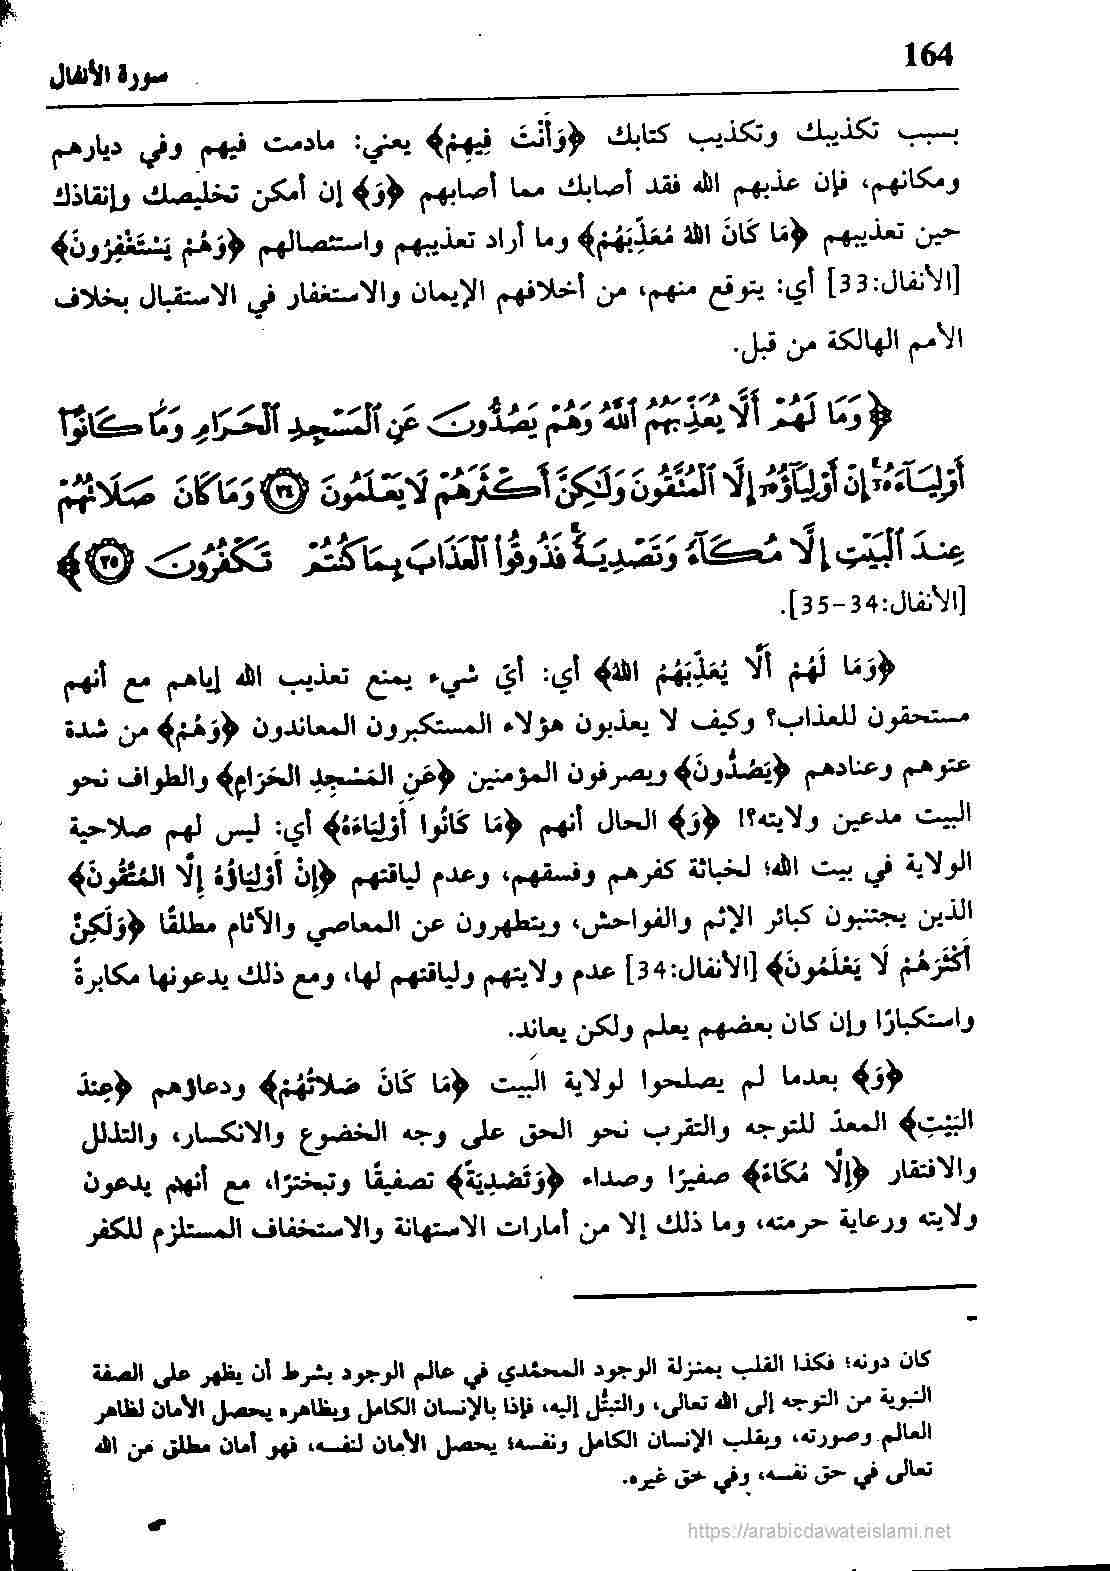 164
سورة الأنفال
بسبب تكذيبك وتكذيب كتابك ﴿وَأَنْتَ فِيهِمْ﴾ يعني: مادمت فيهم وفي ديارهم
ومكانهم، فإن عذبهم الله فقد أصابك مما أصابهم ﴿وَ﴾ إن أمكن تخليصك وإنقاذك
حين تعذيبهم ﴿مَا كَانَ اللهُ مُعَذِّبَهُمْ﴾ وما أراد تعذيبهم واستئصالهم ﴿وَهُمْ يَسْتَغْفِرُونَ﴾
[الأنفال:33] أي: يتوقع منهم، من أخلافهم الإيمان والاستغفار في الاستقبال بخلاف
الأمم الهالكة من قبل.
﴿وَمَا لَهُمْ أَلَّا يُعَذِّبَهُمُ ٱللَّهُ وَهُمْ يَصُدُّونَ عَنِ ٱلْمَسْجِدِ ٱلْحَرَامِ وَمَا كَانُوٓا۟
أَوْلِيَآءَهُۥٓ ۚ إِنْ أَوْلِيَآؤُهُۥٓ إِلَّا ٱلْمُتَّقُونَ وَلَٰكِنَّ أَكْثَرَهُمْ لَا يَعْلَمُونَ ۝٣٤ وَمَا كَانَ صَلَاتُهُمْ
عِندَ ٱلْبَيْتِ إِلَّا مُكَآءً وَتَصْدِيَةً ۚ فَذُوقُوا۟ ٱلْعَذَابَ بِمَا كُنتُمْ تَكْفُرُونَ ۝٣٥﴾
[الأنفال:34-35].
﴿وَمَا لَهُمْ أَلَّا يُعَذِّبَهُمُ اللهُ﴾ أي: أيّ شيء يمنع تعذيب الله إياهم مع أنهم
مستحقون للعذاب؟ وكيف لا يعذبون هؤلاء المستكبرون المعاندون ﴿وَهُمْ﴾ من شدة
عتوهم وعنادهم ﴿يَصُدُّونَ﴾ ويصرفون المؤمنين ﴿عَنِ المَسْجِدِ الحَرَامِ﴾ والطواف نحو
البيت مدعين ولايته؟! ﴿وَ﴾ الحال أنهم ﴿مَا كَانُوا أَوْلِيَاءَهُ﴾ أي: ليس لهم صلاحية
الولاية في بيت الله؛ لخباثة كفرهم وفسقهم، وعدم لياقتهم ﴿إِنْ أَوْلِيَاؤُهُ إِلَّا المُتَّقُونَ﴾
الذين يجتنبون كبائر الإثم والفواحش، ويتطهرون عن المعاصي والآثام مطلقًا ﴿وَلَكِنَّ
أَكْثَرَهُمْ لَا يَعْلَمُونَ﴾ [الأنفال:34] عدم ولايتهم ولياقتهم لها، ومع ذلك يدعونها مكابرةً
واستكبارًا وإن كان بعضهم يعلم ولكن يعاند.
﴿وَ﴾ بعدما لم يصلحوا لولاية البيت ﴿مَا كَانَ صَلاتُهُمْ﴾ ودعاؤهم ﴿عِنْدَ
البَيْتِ﴾ المعدّ للتوجه والتقرب نحو الحق على وجه الخضوع والانكسار، والتذلل
والافتقار ﴿إِلَّا مُكَاءً﴾ صفيرًا وصداء ﴿وَتَصْدِيَةً﴾ تصفيقًا وتبخترًا، مع أنهم يدعون
ولايته ورعاية حرمته، وما ذلك إلا من أمارات الاستهانة والاستخفاف المستلزم للكفر
كان دونه؛ فكذا القلب بمنزلة الوجود المحمّدي في عالم الوجود بشرط أن يظهر على الصفة
النبوية من التوجه إلى الله تعالى، والتبتُّل إليه، فإذا بالإنسان الكامل وبظاهره يحصل الأمان لظاهر
العالم وصورته، وبقلب الإنسان الكامل ونفسه؛ يحصل الأمان لنفسه، فهو أمان مطلق من الله
تعالى في حق نفسه، وفي حق غيره.
https://arabicdawateislami.net